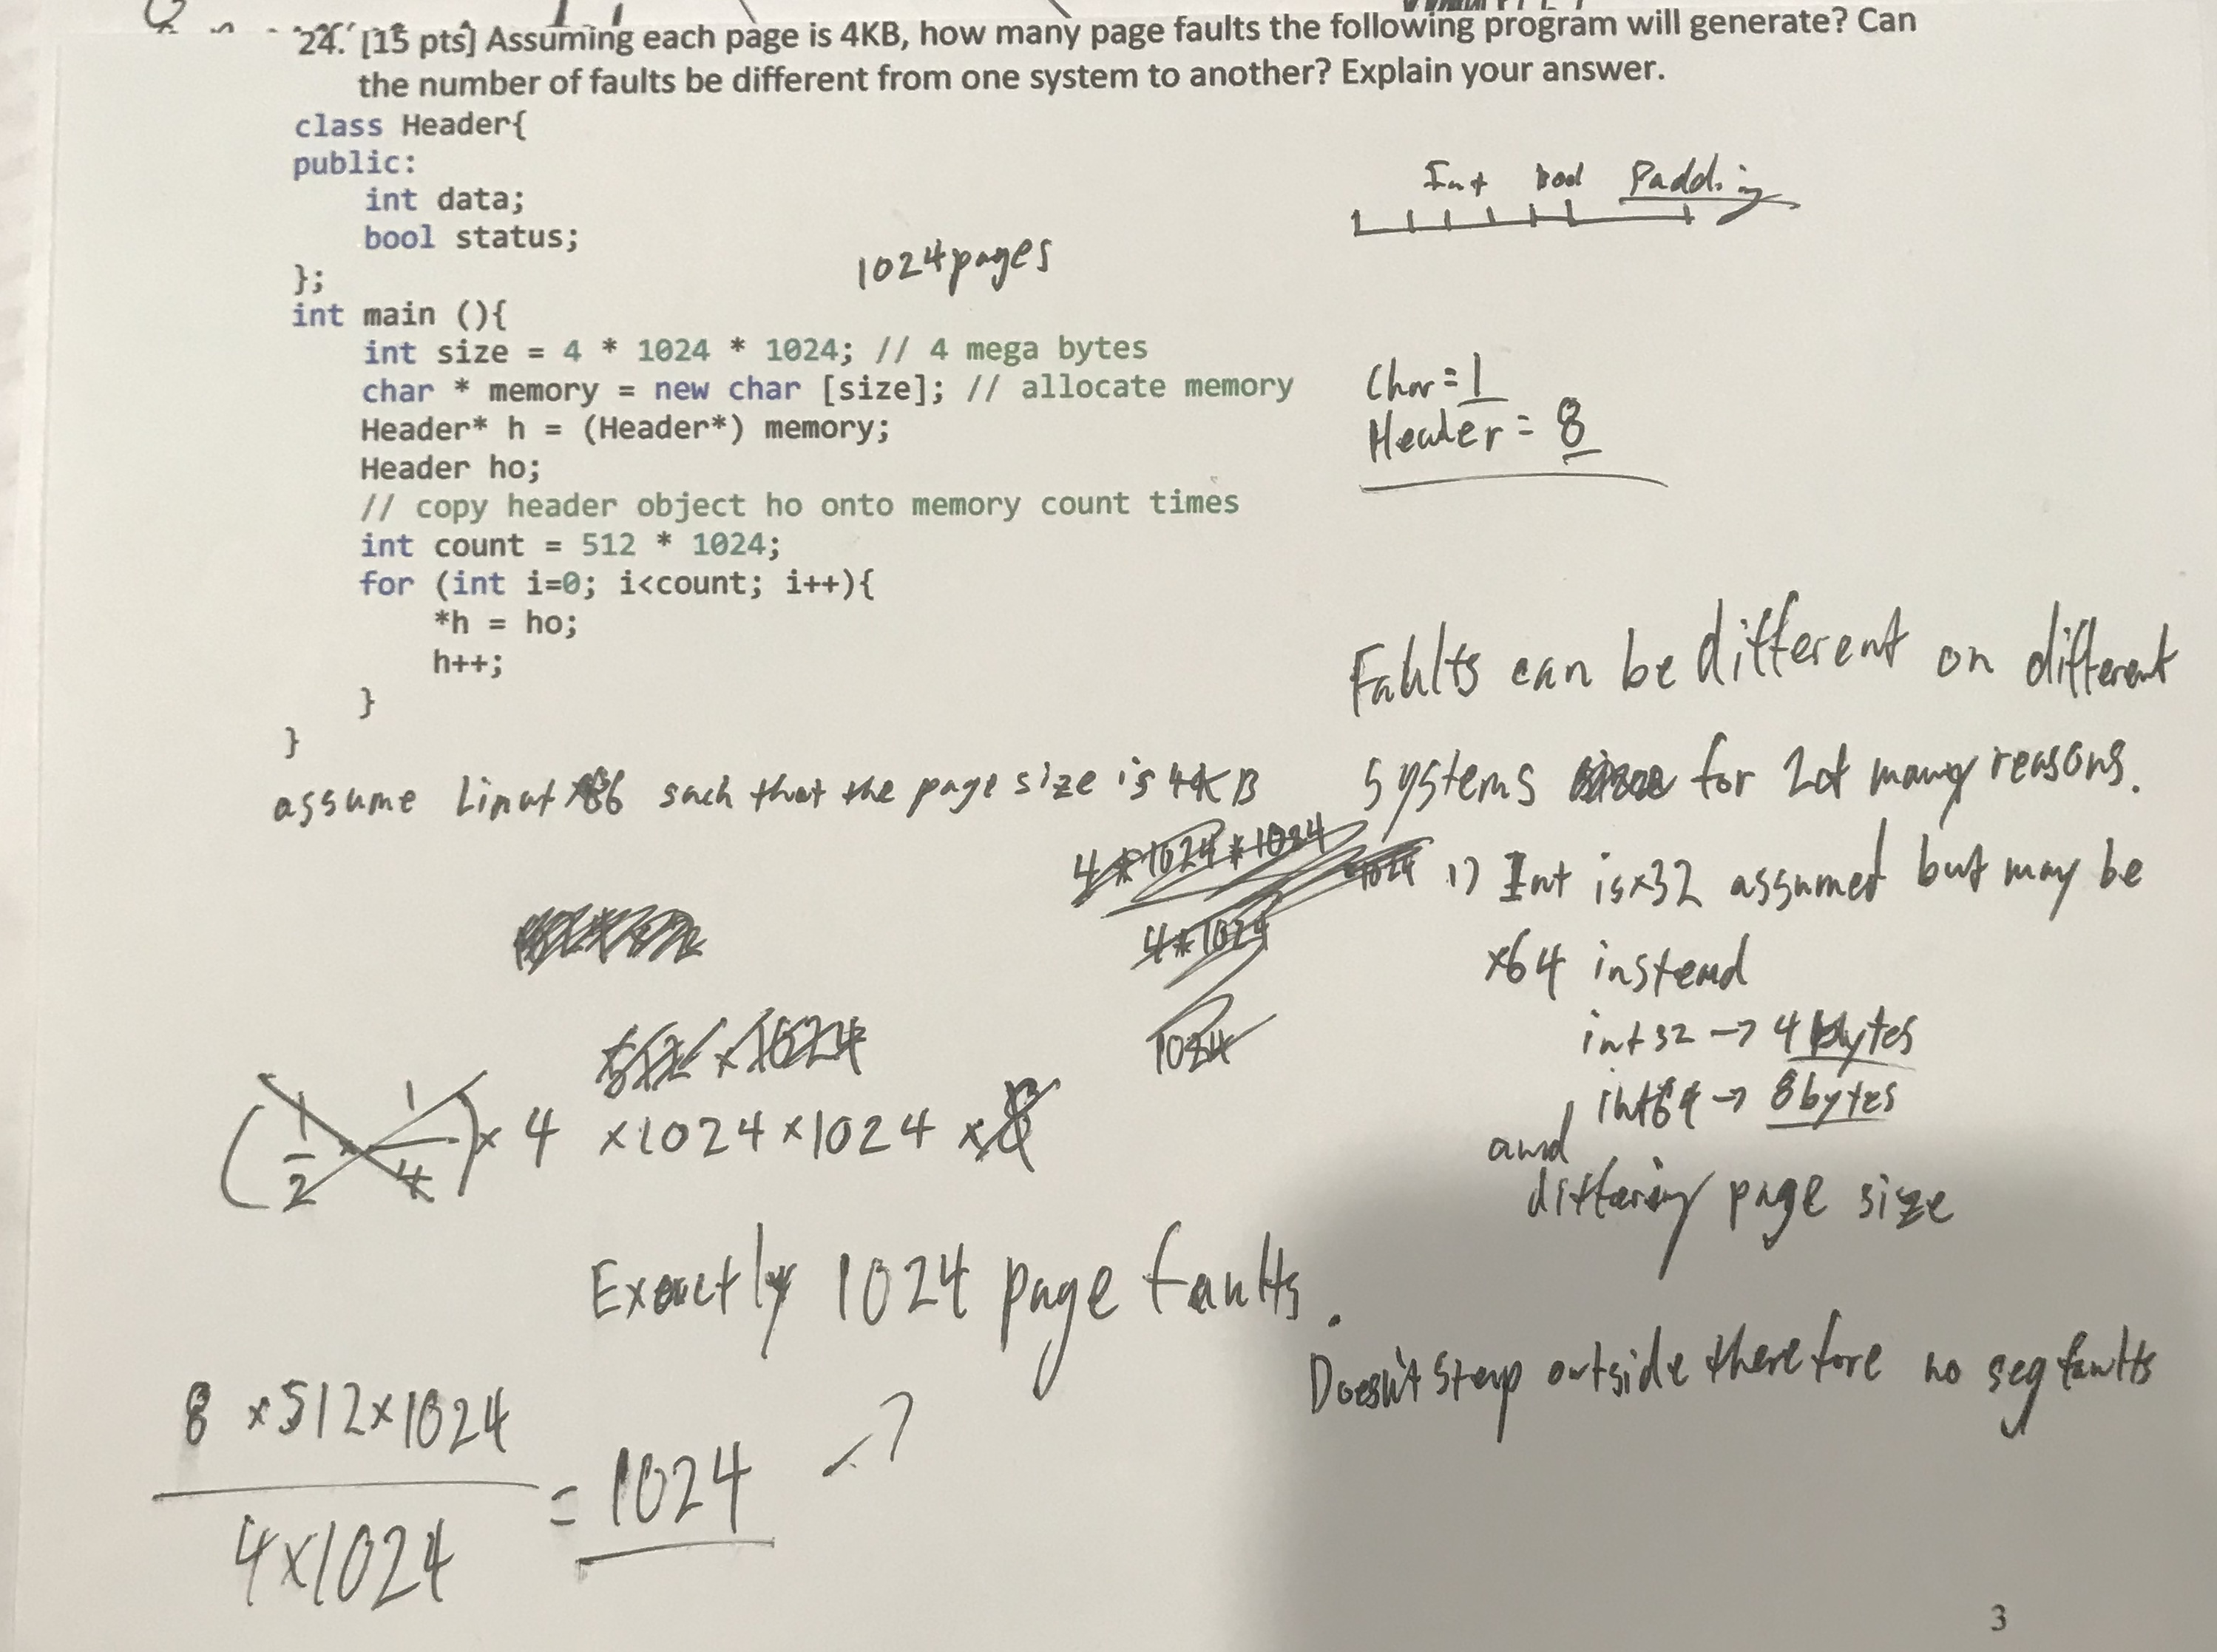 24. [15 pts] Assuming each page is 4KB, how many page faults the following program will generate? Can
the number of faults be different from one system to another? Explain your answer.
class Header{
public:
int data;
bool status;
};
int main (){
int size = 4 * 1024 * 1024; // 4 mega bytes
char * memory = new char [size]; // allocate memory
Header* h = (Header*) memory;
Header ho;
// copy header object ho onto memory count times
int count = 512 * 1024;
for (int i=0; i<count; i++){
*h = ho;
h++;
}
}
Int bool Padding
1024 pages
Char = 1
Header = 8
assume x86 such that the page size is 4KB
4*1024*1024
4*1024
1024
Faults can be different on different
systems for many reasons.
1) Int is x32 assumed but may be
x64 instead
int32 -> 4 bytes
int64 -> 8 bytes
and
differing page size
512 x 1024
( 1/2 x 1/4 ) x 4 x 1024 x 1024 x 8
Exactly 1024 page faults.
Doesn't step outside therefore no seg faults
8 x 512 x 1024
= 1024
4 x 1024
3